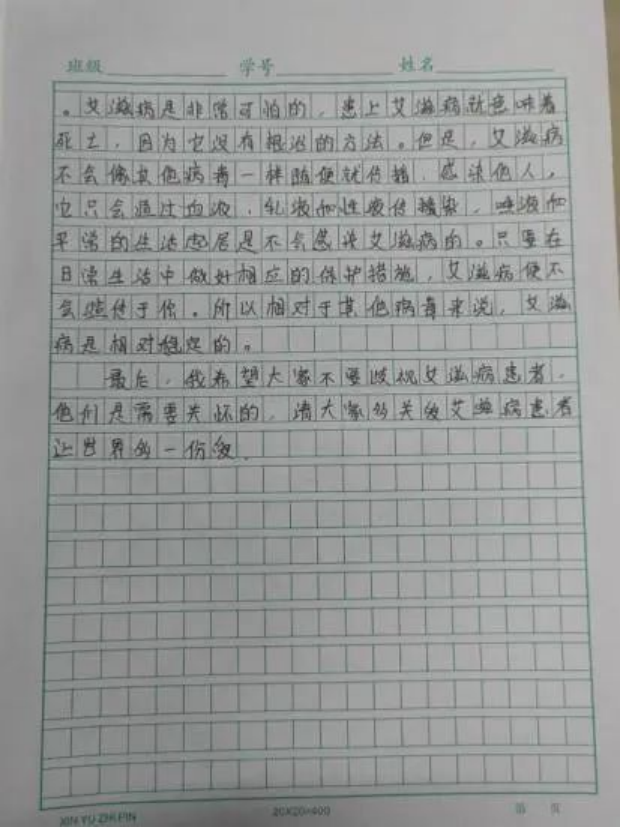 班级 学号 姓名
。艾滋病是非常可怕的，患上艾滋病就意味着
死亡，因为它没有根治的方法。但是，艾滋病
不会像其他病毒一样随便就传播，感染他人，
它只会通过血液，乳液和性液传播染，唾液和
平常的生活起居是不会感染艾滋病的。只要在
日常生活中做好相应的保护措施，艾滋病便不
会传于你。所以相对于其他病毒来说，艾滋
病是相对稳定的。
最后，我希望大家不要歧视艾滋病患者，
他们是需要关怀的，请大家多关爱艾滋病患者
让世界多一份爱.
XIN YU ZHI PIN
20X20=400
第 页